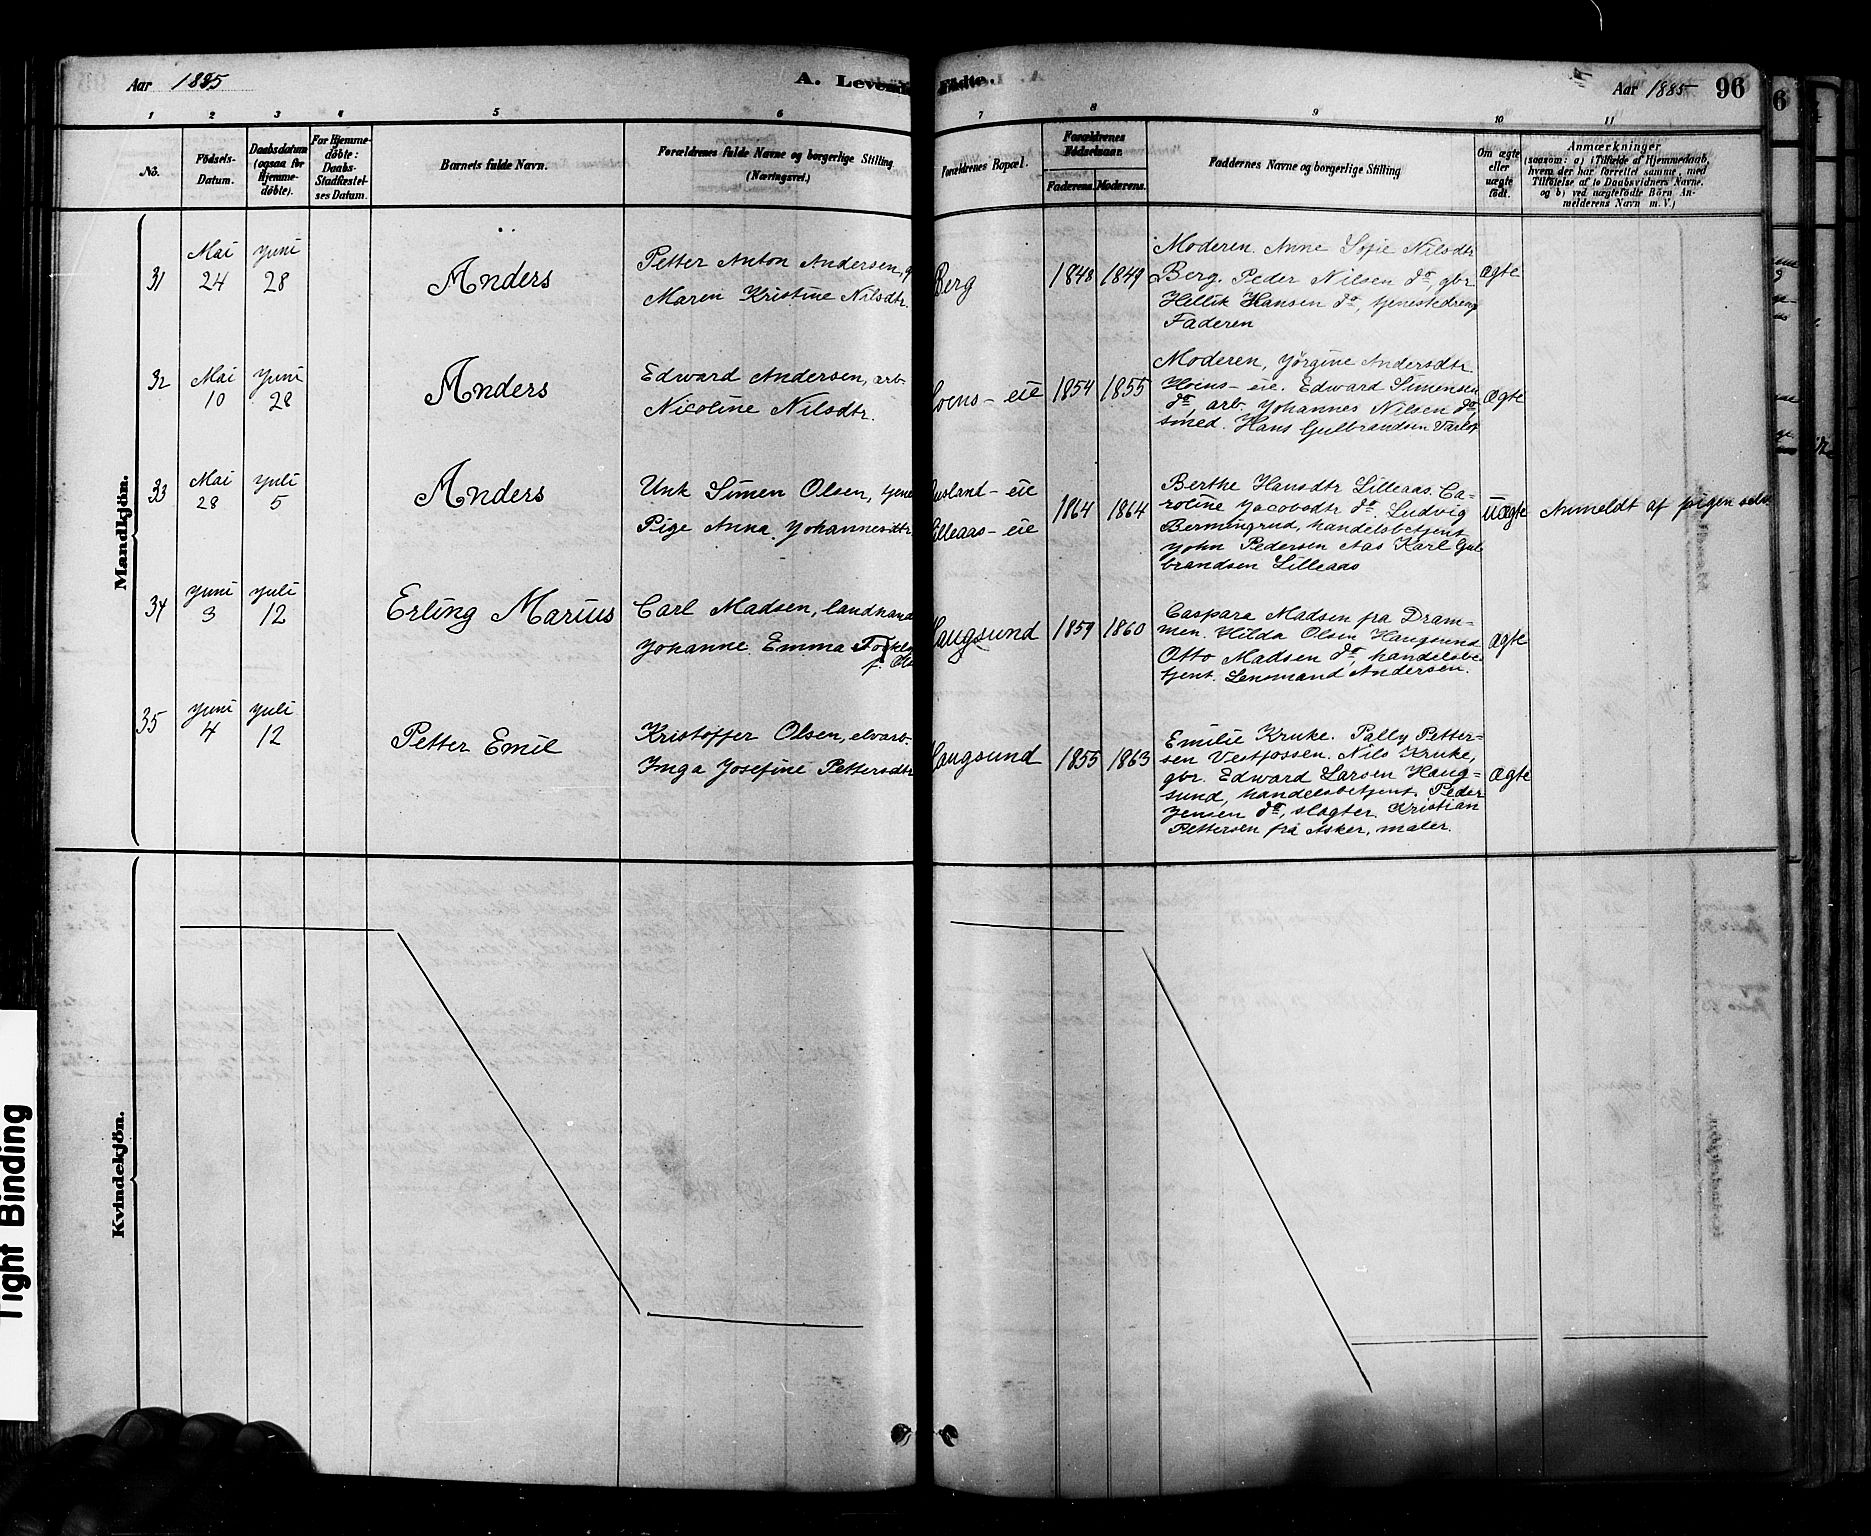 Aar 1885
A. Levende
Fødte.
Aar 1885
96
1 2 3 4 5 6 7 8 9 10 11
No.
Födsels-
Datum.
Daabsdatum
(ogsaa for
Hjemme-
döbte).
For Hjemme-
döbte:
Daabs-
Stadfæstel-
ses Datum.
Barnets fulde Navn.
Forældrenes fulde Navne og borgerlige Stilling
(Næringsvei.)
Forældrenes Bopæl.
Forældrenes
Födselsaar.
Faderens. Moderens.
Faddernes Navne og borgerlige Stilling
Om ægte
eller
uægte
födt.
Anmærkninger
(saasom: a) i Tilfælde af Hjemmedaab,
hvem der har forrettet samme, med
Tilföielse af to Daabsvidners Navne.
og b) ved uægtefödte Börn An-
melderens Navn m. V.)
Mandkjön.
31
Mai
24
Juni
28
Anders
Petter Anton Andersen, g
Maren Kristine Nilsdtr.
Berg
1848 1849
Moderen. Anne Sofie Nilsdtr
Berg. Peder Nilsen do, gbr
Hellik Hansen do, tjenestedreng
Faderen
ægte
32
Mai
10
Juni
28
Anders
Edward Andersen, arb.
Nicoline Nilsdtr.
Hoens-eie
1854 1855
Moderen, Jörgine Andersdtr
Hoens-eie. Edward Simensen
do, arb. Johannes Nilsen do,
smed. Hans Gulbrandsen Varlo
ægte
33
Mai
28
Juli
5
Anders
Unk Simen Olsen, tjene
Pige Anna Johannesdtr.
Rusland-eie
Lilleaas-eie
1864 1864
Berthe Hansdtr Lilleaas. Ca-
roline Jacobsdtr do. Ludvig
Bermingrud, handelsbetjent
John Pedersen Aas Karl Gul
brandsen Lilleaas
uægte
Anmeldt af pigen selv
34
Juni
3
Juli
12
Erling Marius
Carl Madsen, landhand
Johanne Emma
f. Ols
Haugsund
1859 1860
Caspara Madsen fra Dram-
men. Hilda Olsen Haugsund
Otto Madsen do, handelsbe-
tjent. Lensmand Andersen.
ægte
35
Juni
4
Juli
12
Petter Emil
Kristoffer Olsen, elvarb.
Inga Josefine Pettersdtr
Haugsund
1855 1863
Emilie Kruke. Pally Petter-
sen Vestfossen. Nils Kruke,
gbr. Edward Larsen Haug-
sund, handelsbetjent. Peder
Jensen do, slagter. Kristian
Pettersen fra Asker, maler.
ægte
Kvindekjön.
Tight Binding
6